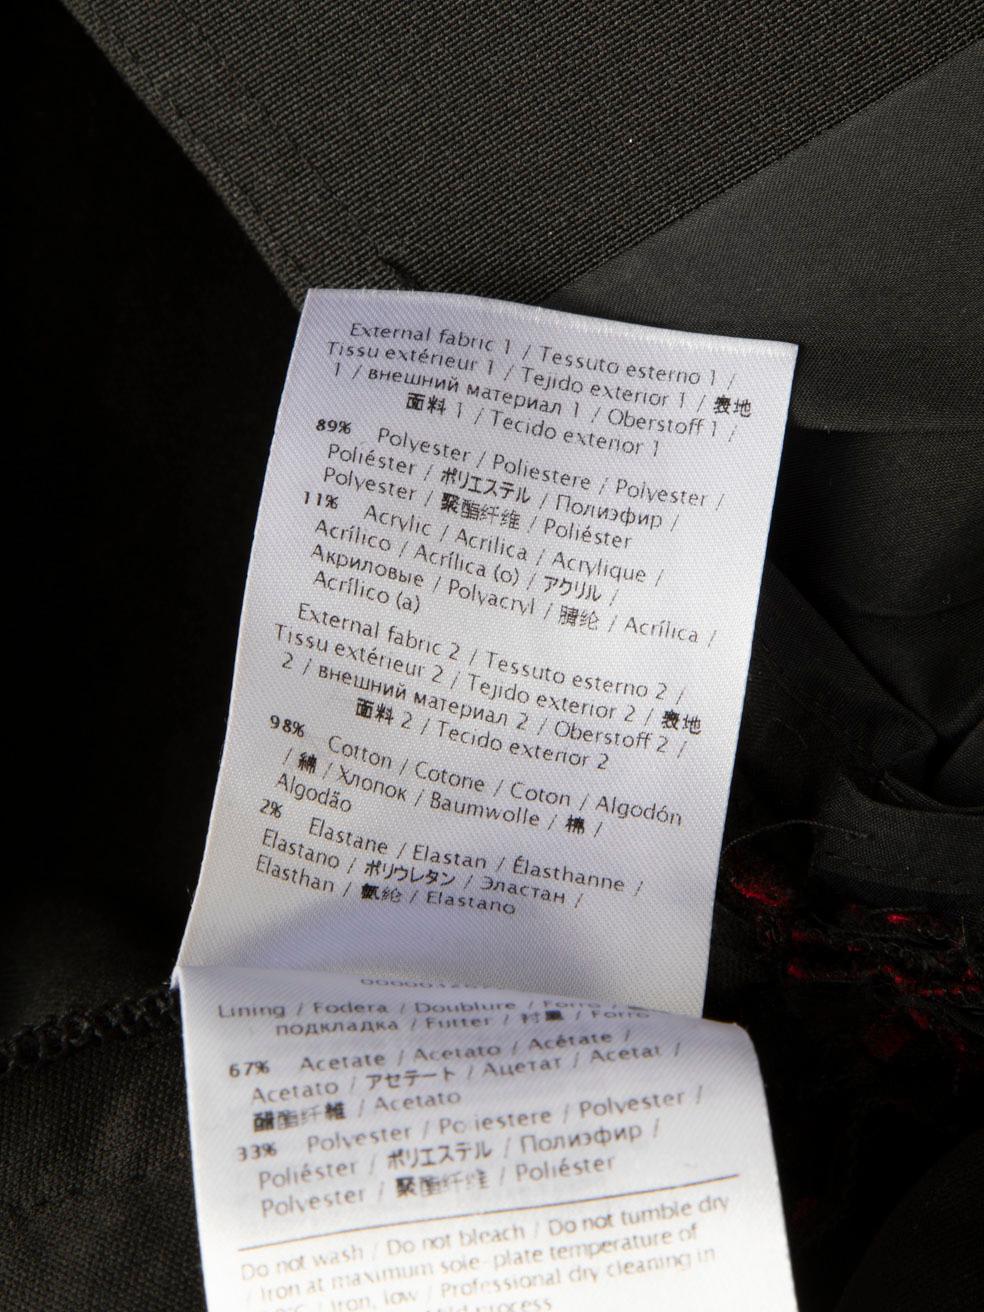 External fabric 1 / Tessuto esterno 1 /
Tissu extérieur 1 / Tejido exterior 1 / 表地
1 / внешний материал 1 / Oberstoff 1 /
面料 1 / Tecido exterior 1
89% Polyester / Poliestere / Polyester /
Poliéster / ポリエステル / Полиэфир /
Polyester / 聚酯纤维 / Poliéster
11% Acrylic / Acrilica / Acrylique /
Acrílico / Acrílica (o) / アクリル /
Акриловые / Polyacryl / 腈纶 / Acrílica /
Acrílico (a)
External fabric 2 / Tessuto esterno 2 /
Tissu extérieur 2 / Tejido exterior 2 / 表地
2 / внешний материал 2 / Oberstoff 2 /
面料 2 / Tecido exterior 2
98% Cotton / Cotone / Coton / Algodón
/ 綿 / Хлопок / Baumwolle / 棉 /
Algodão
2% Elastane / Elastan / Élasthanne /
Elastano / ポリウレタン / Эластан /
Elasthan / 氨纶 / Elastano
Lining / Fodera / Doublure / Forro /
подкладка / Futter / 衬里 / Forro
67% Acetate / Acetato / Acétate /
Acetato / アセテート / Ацетат / Acetat /
醋酯纤维 / Acetato
33% Polyester / Poliestere / Polyester /
Poliéster / ポリエステル / Полиэфир /
Polyester / 聚酯纤维 / Poliéster
Do not wash / Do not bleach / Do not tumble dry
/ Iron at maximum sole-plate temperature of
/ Iron, low / Professional dry cleaning in
process